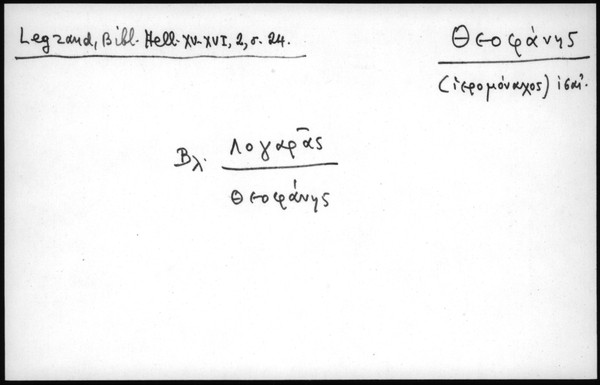 Legrand, Bibl. Hell. XV-XVI, 2, σ. 24.
Θεοφάνης
(ἱερομόναχος) ις αἰ.
Βλ. Λογαρᾶς
Θεοφάνης